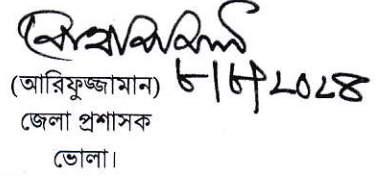 (আরিফুজ্জামান) ৮/৮/২০২৪
জেলা প্রশাসক
ভোলা।